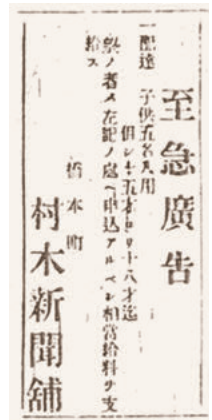 至急廣告
一配達 子供五名入用
但シ十五才ヨリ十八才迄
望ノ者ハ左記ノ處ヘ申込アルベシ相當給料ヲ支
給ス
橋本町
村木新聞舖